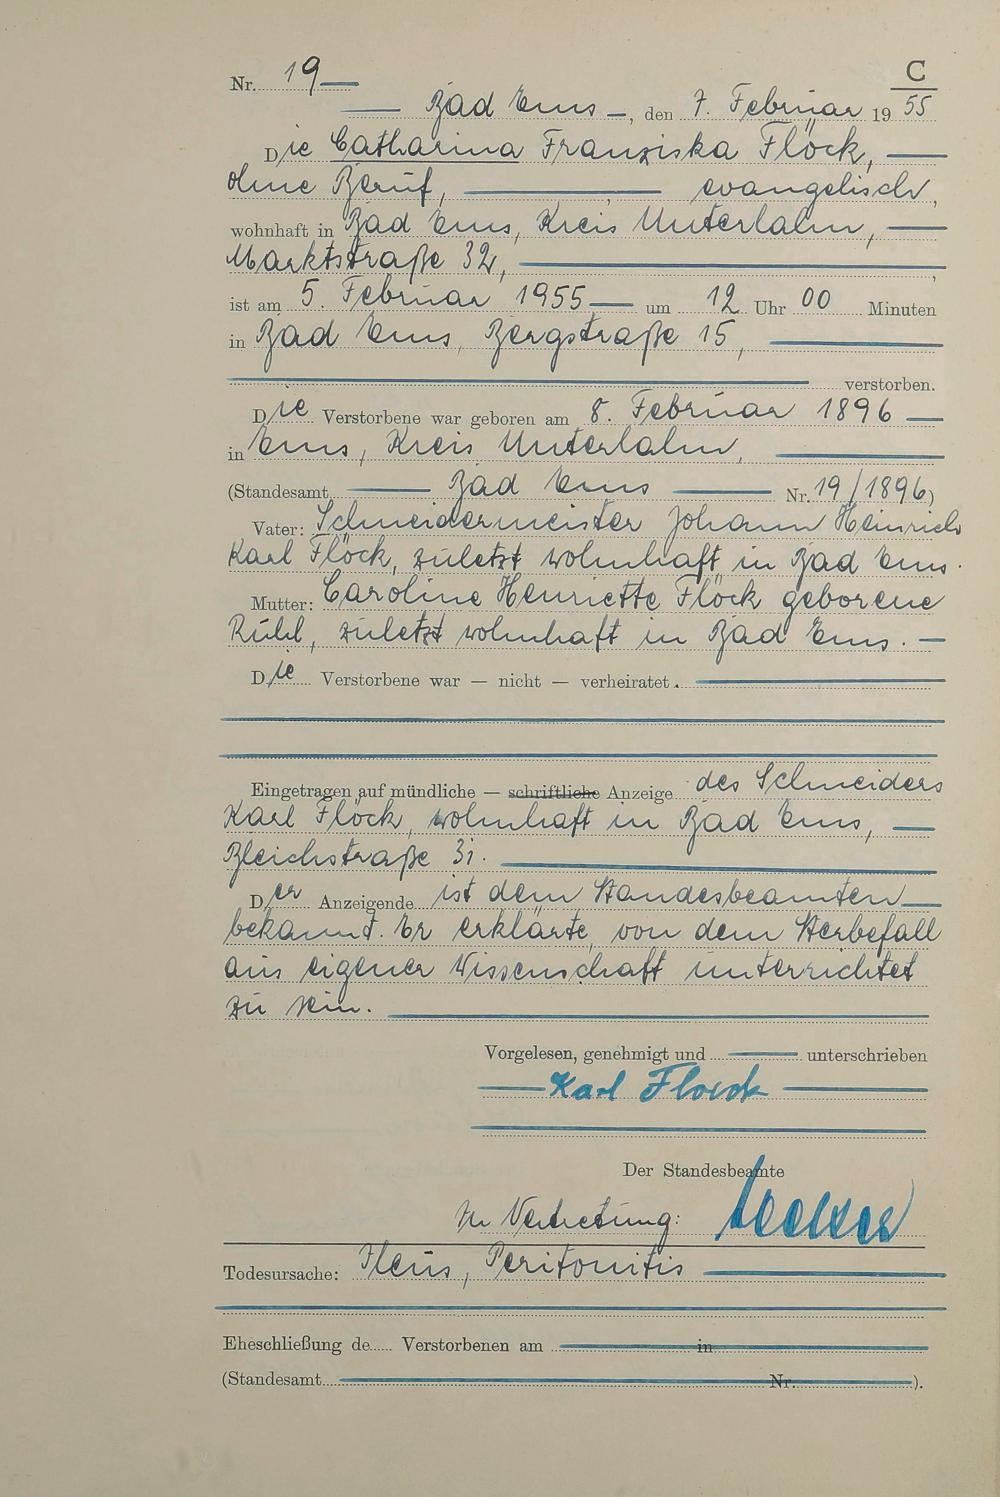 C
Nr. 19
Bad Ems, den 7. Februar 1955
Die Catharina Franziska Flöck,
ohne Beruf, evangelisch,
wohnhaft in Bad Ems, Kreis Unterlahn,
Marktstraße 32,
ist am 5. Februar 1955 um 12 Uhr 00 Minuten
in Bad Ems, Bergstraße 15,
verstorben.
Die Verstorbene war geboren am 8. Februar 1896
in Ems, Kreis Unterlahn,
(Standesamt Bad Ems Nr. 19/1896)
Vater: Schneidermeister Johann Heinrich
Karl Flöck, zuletzt wohnhaft in Bad Ems.
Mutter: Caroline Henriette Flöck geborene
Rühl, zuletzt wohnhaft in Bad Ems. —
Die Verstorbene war — nicht — verheiratet.
Eingetragen auf mündliche — schriftliche Anzeige des Schneiders
Karl Flöck, wohnhaft in Bad Ems,
Bleichstraße 31.
Der Anzeigende ist dem Standesbeamten
bekannt. Er erklärte, von dem Sterbefall
aus eigener Wissenschaft unterrichtet
zu sein.
Vorgelesen, genehmigt und unterschrieben
Karl Floeck
Der Standesbeamte
In Vertretung:
Todesursache: Ileus, Peritonitis
Eheschließung de Verstorbenen am in
(Standesamt Nr. ).